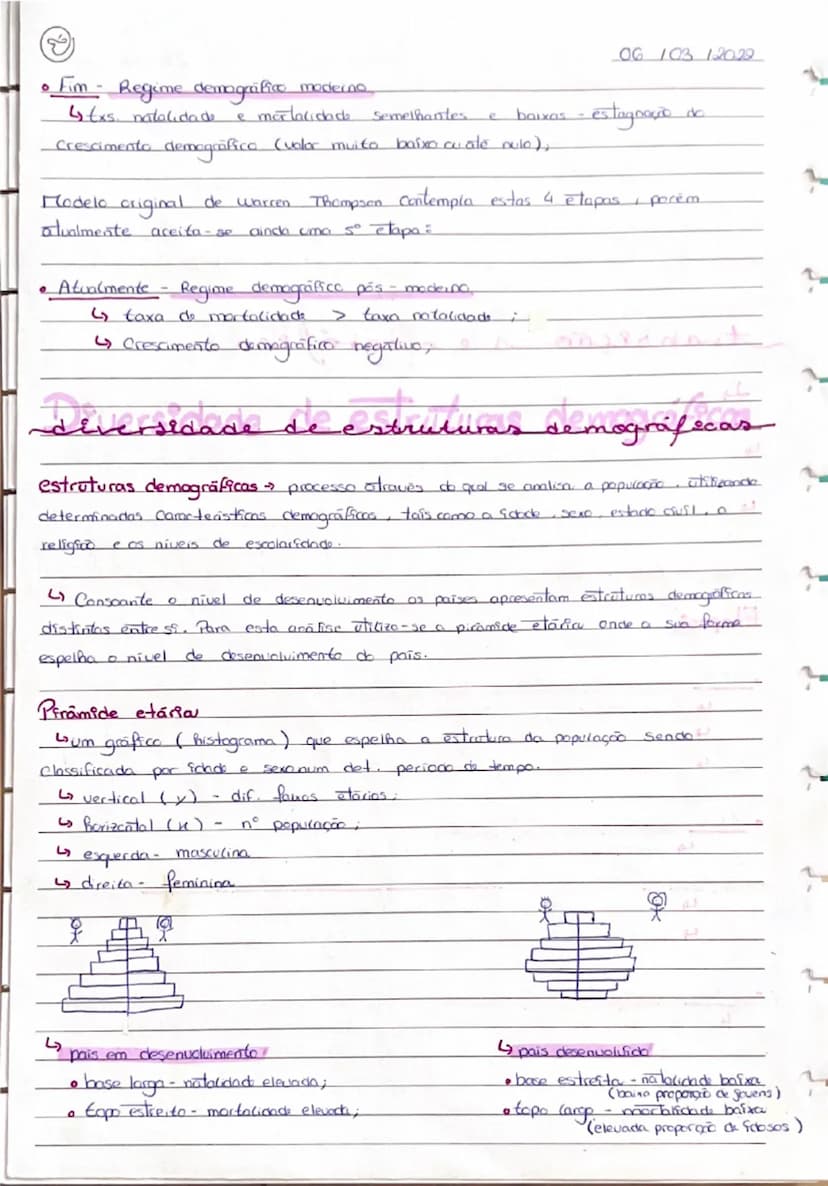 06 / 03 / 2022
• Fim - Regime demográfico moderno
↳ txs. natalidade e mortalidade semelhantes e baixas - estagnação do
crescimento demográfico (valor muito baixo ou até nulo);
Modelo original de Warren Thompson contempla estas 4 etapas, porém
atualmente aceita-se ainda uma 5ª etapa:
• Atualmente - Regime demográfico pós-moderno
↳ taxa de mortalidade > taxa natalidade ;
↳ Crescimento demográfico negativo;
Diversidade de estruturas demográficas
diversidade de estruturas demográficas
estruturas demográficas → processo através do qual se analisa a população, utilizando
determinadas características demográficas, tais como a idade, sexo, estado civil, a
religião e os níveis de escolaridade.
↳ Consoante o nível de desenvolvimento os países apresentam estruturas demográficas
distintas entre si. Para esta análise utiliza-se a pirâmide etária onde a sua forma
espelha o nível de desenvolvimento do país.
Pirâmide etária
↳ um gráfico (histograma) que espelha a estrutura da população sendo
classificada por idade e sexo num det. período de tempo.
↳ vertical (y) - dif. faixas etárias;
↳ horizontal (x) - nº população;
↳ esquerda - masculina
↳ direita - feminina
↳ país em desenvolvimento
• base larga - natalidade elevada;
• topo estreito - mortalidade elevada;
↳ país desenvolvido
• base estreita - natalidade baixa
(baixa proporção de jovens)
• topo largo - mortalidade baixa
(elevada proporção de idosos)